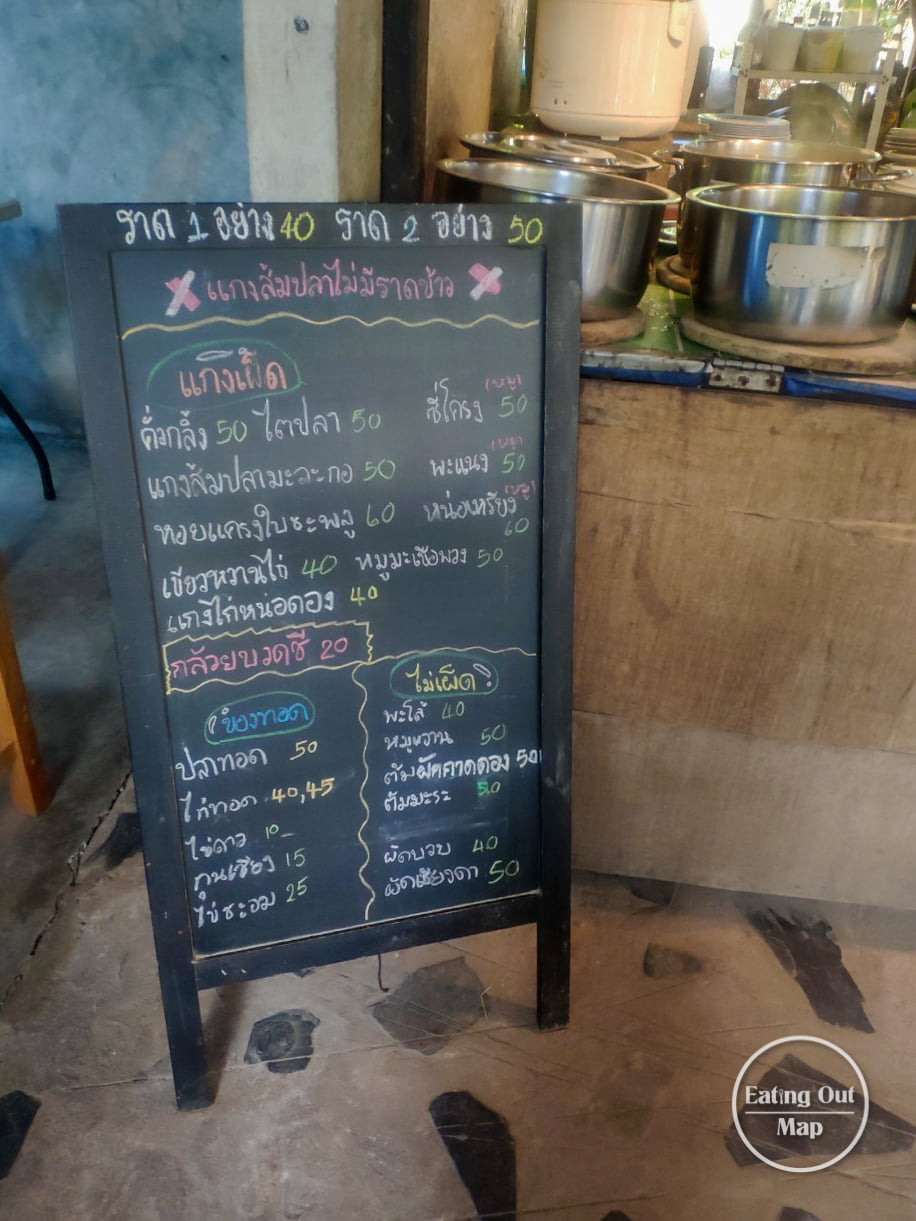 ราด 1 อย่าง 40 ราด 2 อย่าง 50
แกงส้มปลาไม่มีราดข้าว
แกงเผ็ด
คั่วกลิ้ง 50 ไตปลา 50
ซี่โครง (หมู) 50
แกงส้มปลามะละกอ 50
พะแนง (หมู) 50
หอยแครงใบชะพลู 60
หน่อเหรียง (หมู) 60
เขียวหวานไก่ 40 หมูมะเขือพวง 50
แกงไก่หน่อดอง 40
กล้วยบวดชี 20
ของทอด
ปลาทอด 50
ไก่ทอด 40,45
ไข่ดาว 10-
กุนเชียง 15
ไข่ชะอม 25
ไม่เผ็ด
พะโล้ 40
หมูหวาน 50
ต้มผักกาดดอง 50
ต้มมะระ 50
ผัดบวบ 40
ผัดเชียงดา 50
Eating Out
Map